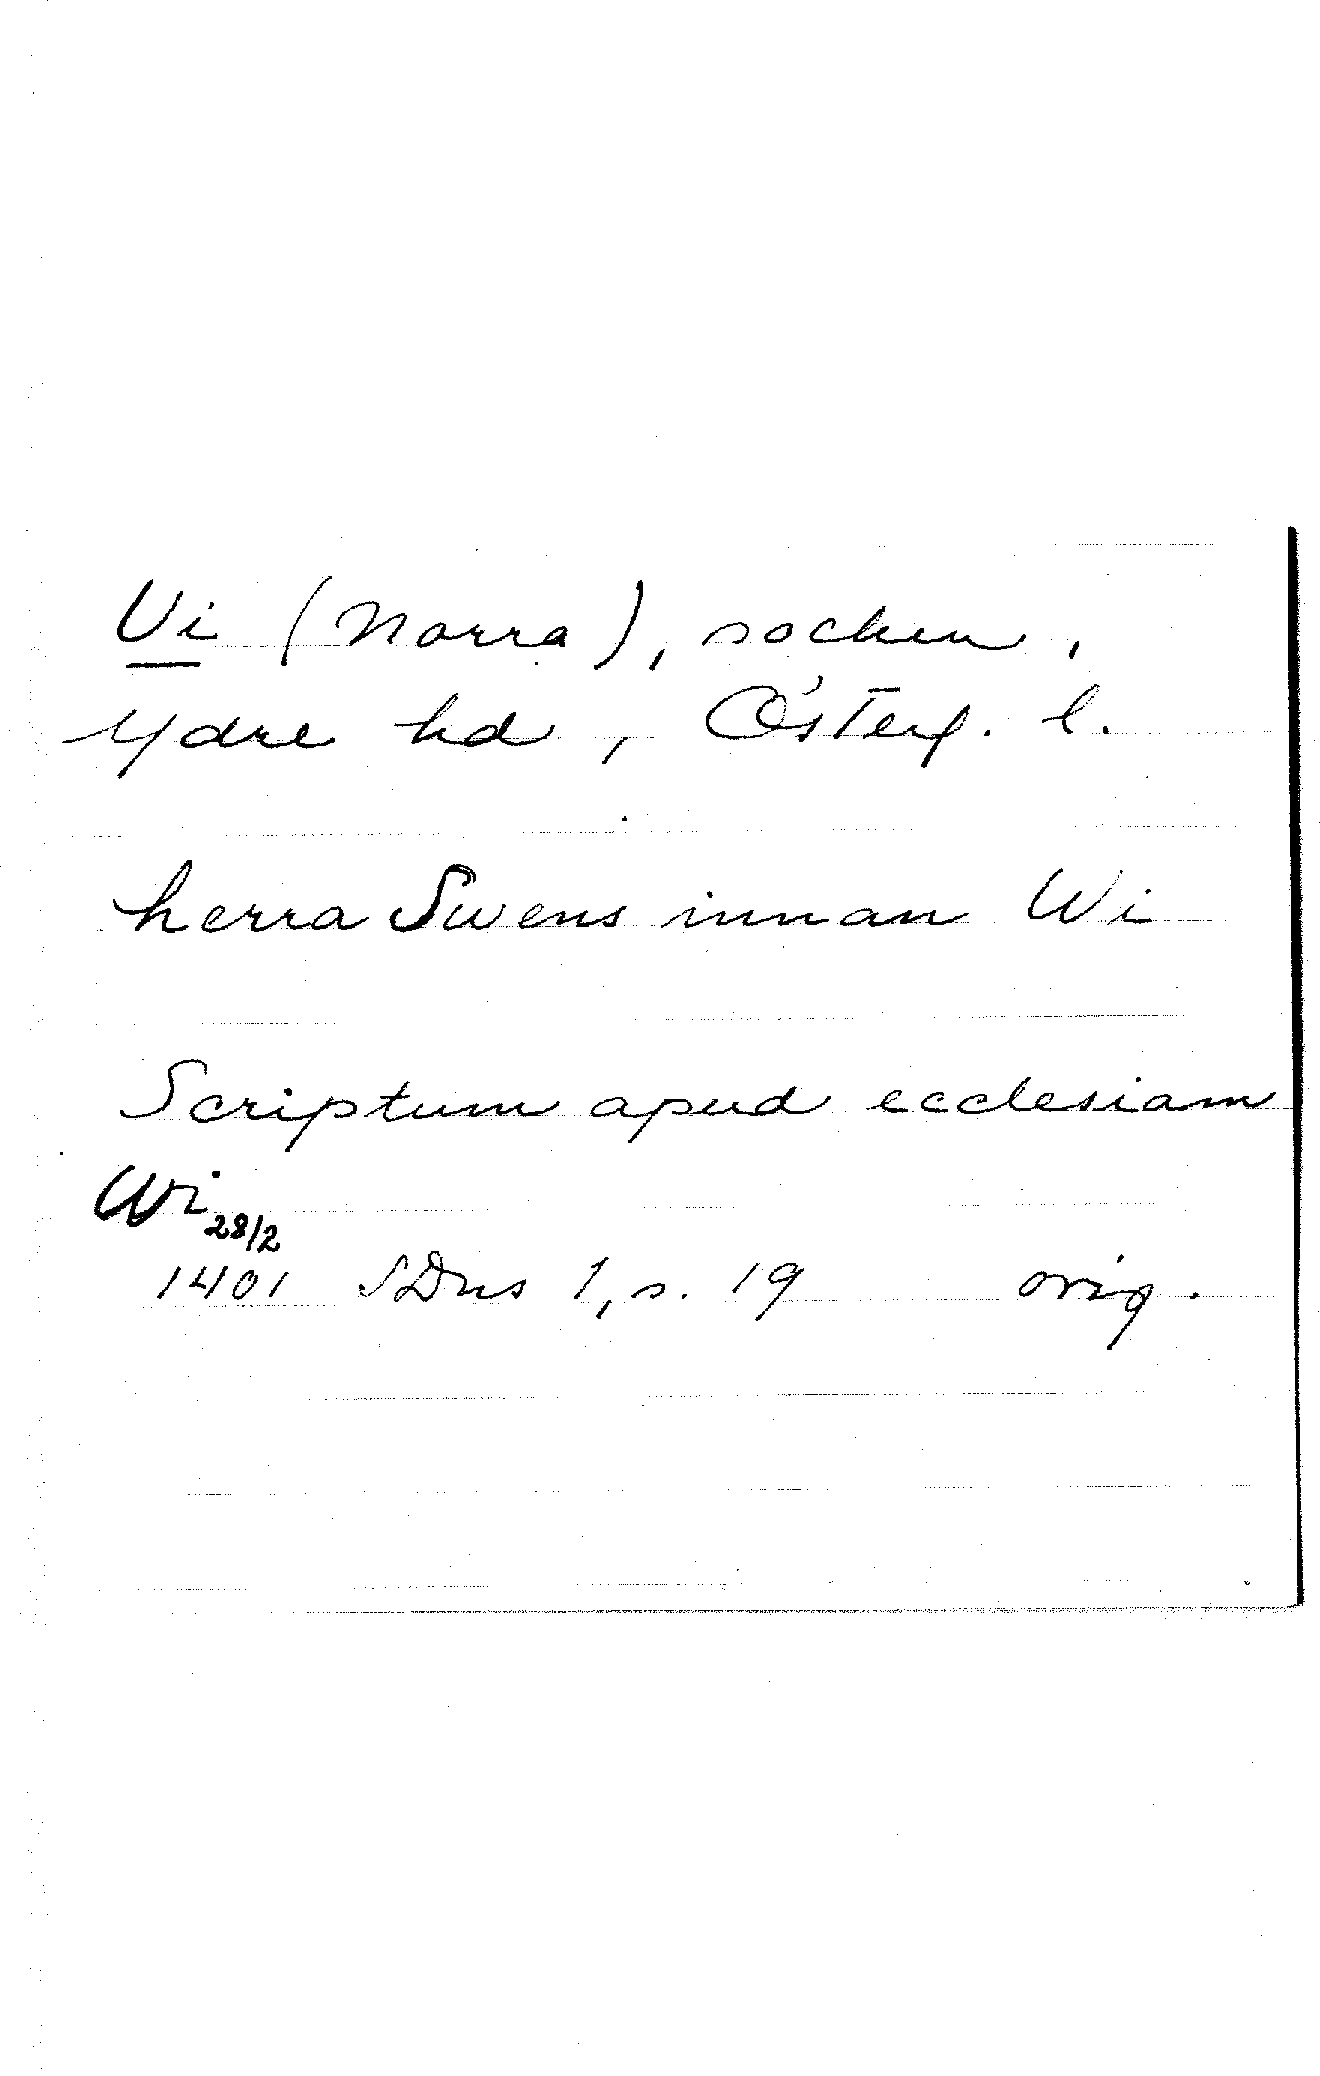 Vi (Norra), socken,
Ydre hd, Österg. l.
herra Swens innan Wi
Scriptum apud ecclesiam
Wi
28/2
1401 SDns 1, s. 19 orig.